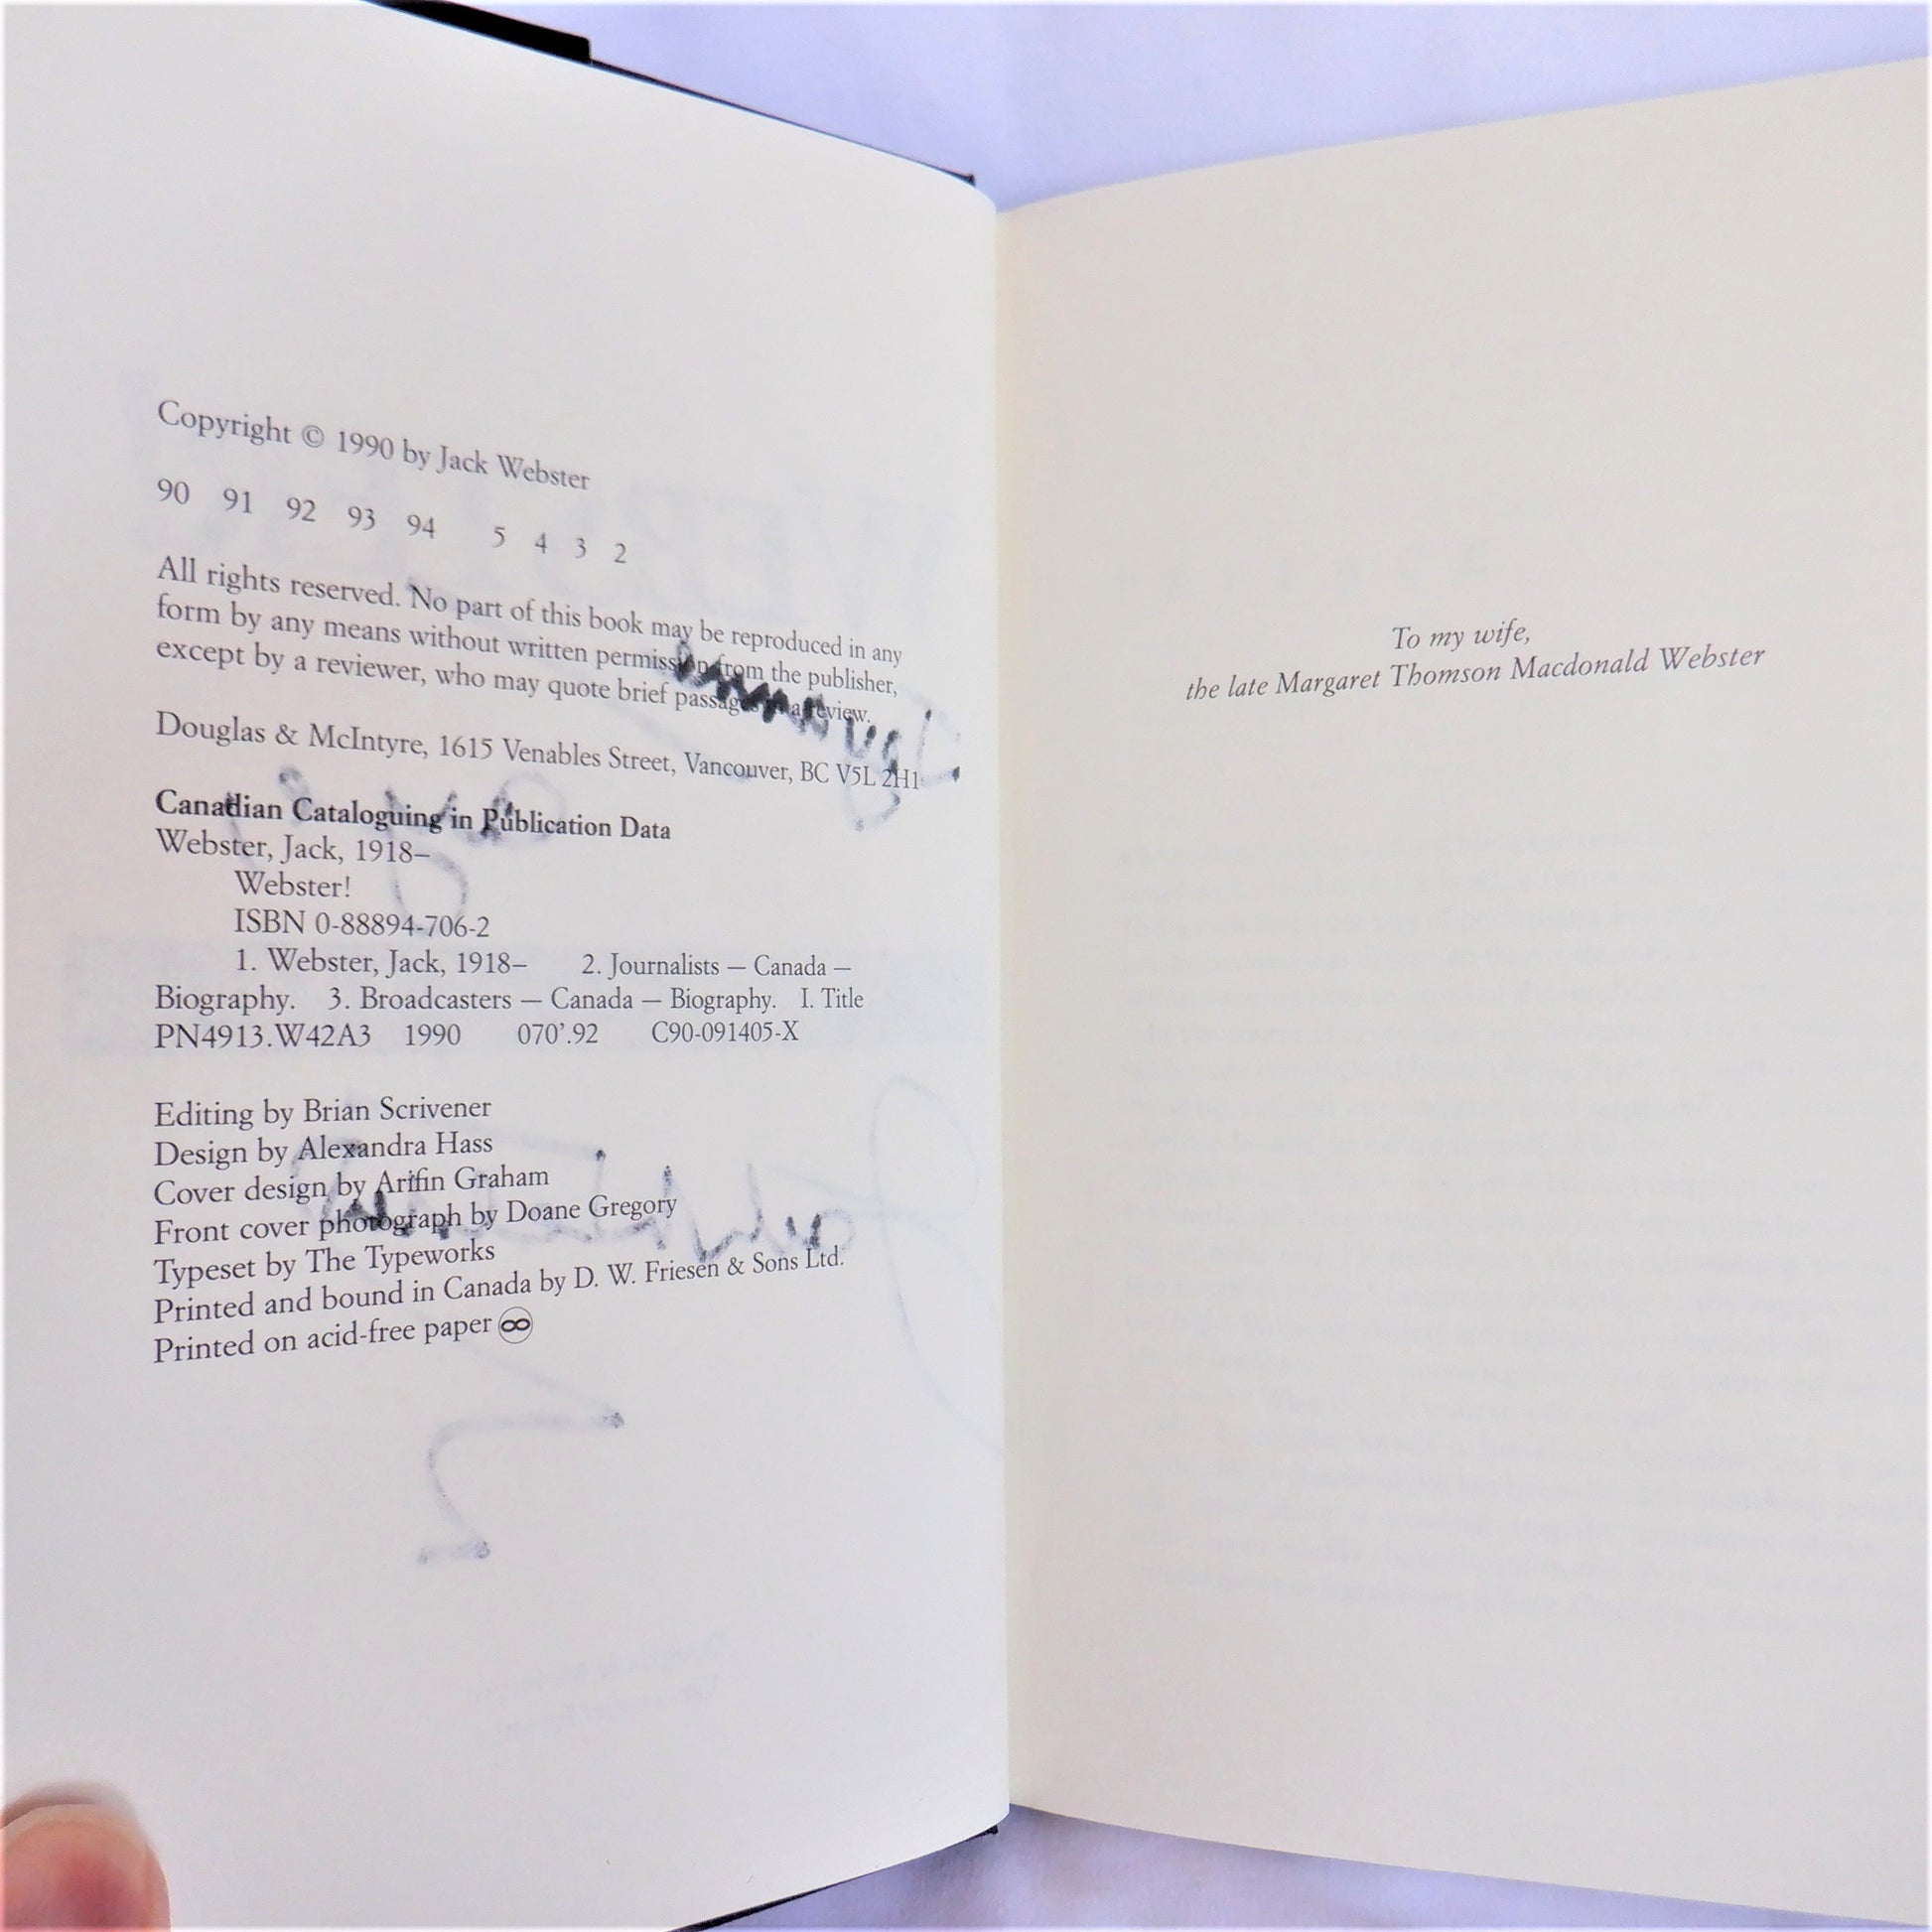 Copyright © 1990 by Jack Webster
90 91 92 93 94 5 4 3 2
All rights reserved. No part of this book may be reproduced in any
form by any means without written permission from the publisher,
except by a reviewer, who may quote brief passages in a review.
Douglas & McIntyre, 1615 Venables Street, Vancouver, BC V5L 2H1
Canadian Cataloguing in Publication Data
Webster, Jack, 1918–
Webster!
ISBN 0-88894-706-2
1. Webster, Jack, 1918– 2. Journalists — Canada —
Biography. 3. Broadcasters — Canada — Biography. I. Title
PN4913.W42A3 1990 070'.92 C90-091405-X
Editing by Brian Scrivener
Design by Alexandra Hass
Cover design by Arifin Graham
Front cover photograph by Doane Gregory
Typeset by The Typeworks
Printed and bound in Canada by D. W. Friesen & Sons Ltd.
Printed on acid-free paper ♾
To my wife,
the late Margaret Thomson Macdonald Webster